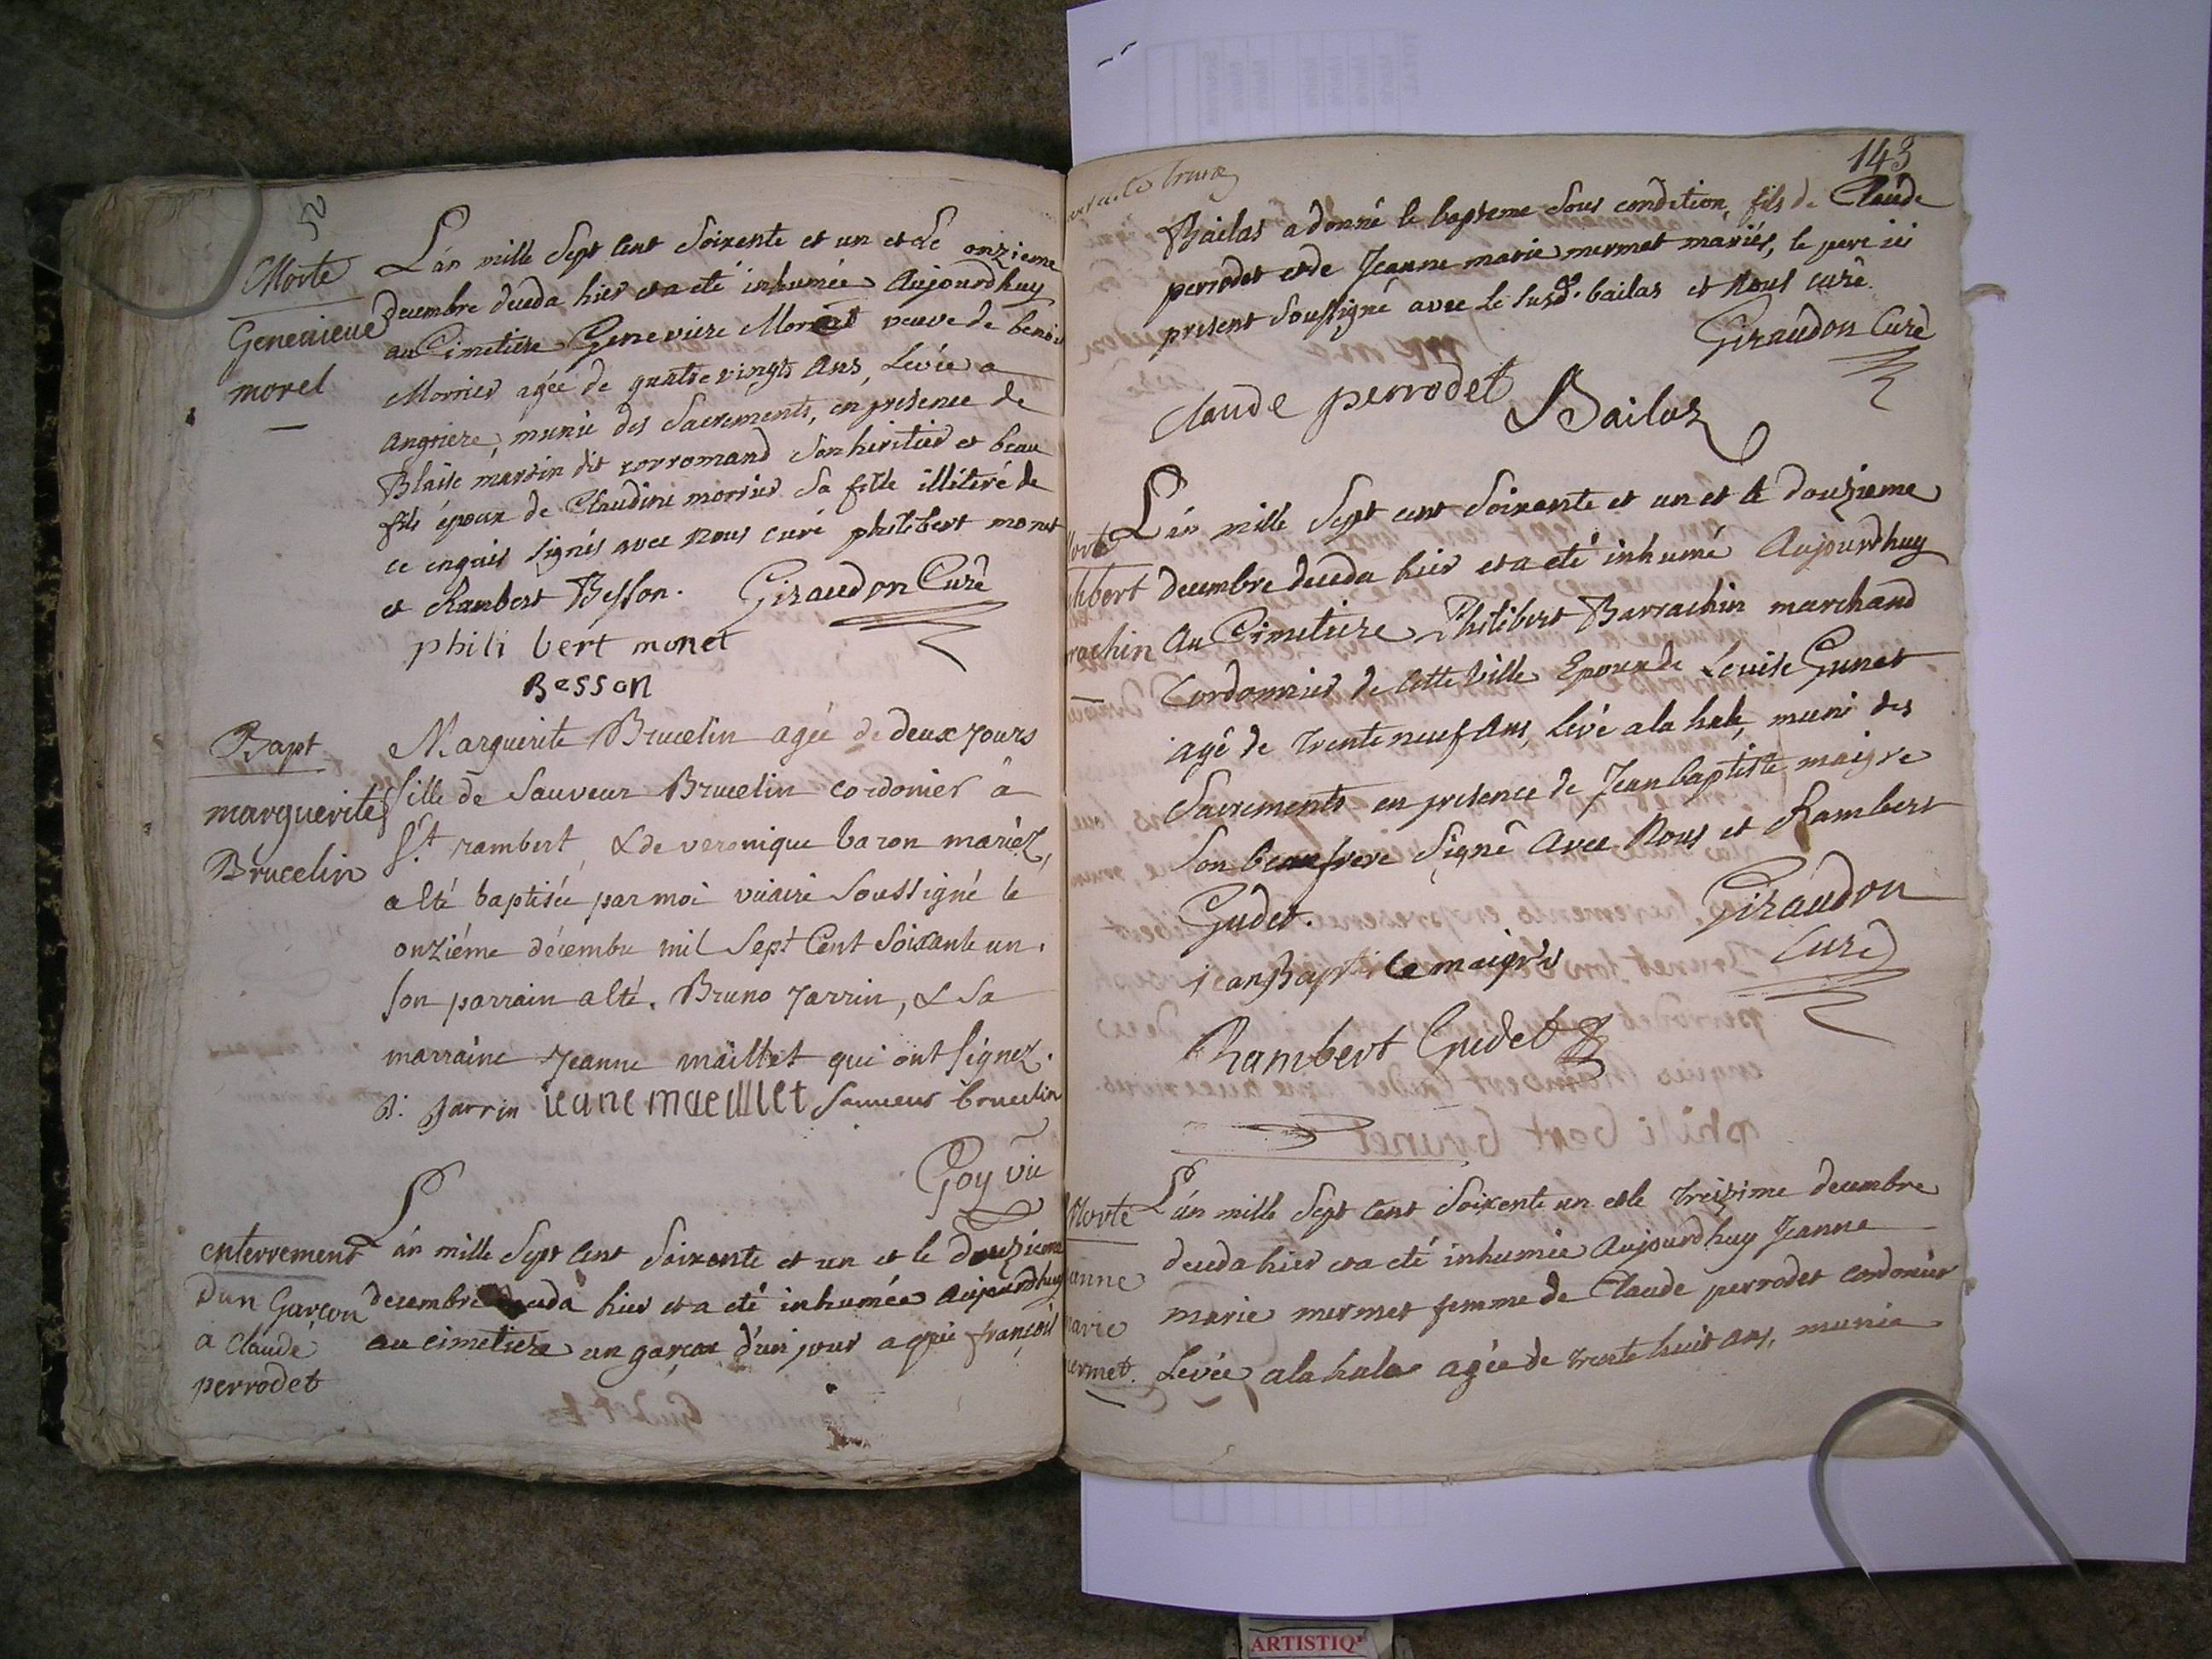 Morte
Genevieve
morel
L'an mille Sept Cent Soixente et un et Le onzieme
decembre deceda hier et a eté inhumée Aujourdhuy
au Cimetiere Genevieve Morel veuve de benoit
Morrier agée de quatre vingts Ans, Levée a
angriere, munie des Sacrements, en presence de
Blaise martin dit corromand Son heritier et beau
fils époux de Claudine morrier Sa fille illiteré de
ce enquis signés avec nous curé philibert monet
et Rambert Besson. Giraudon Curé
phili bert monet
Besson
Bapt
marguerite
Brucelin
Marguerite Brucelin agée de deux jours
fille de Sauveur Brucelin cordonier à
St. rambert, & de veronique baron mariéz,
a été baptisée par moi vicaire Soussigné le
onziéme décembre mil Sept Cent Soixante un.
son parrain a été. Bruno Jarrin, & Sa
marraine Jeanne maillet qui ont signez.
B: Jarrin ieane maeillet Sauveur brucelin
Goy vic
enterrement
d'un Garçon
a Claude
perrodet
L'an mille Sept Cent Soixente et un et le douzieme
decembre deceda hier et a eté inhumée Aujourdhuy
au cimetiere un garçon d'un jour a qui françois
143
Bailas a donné le bapteme Sous condition, fils de Claude
perrodet et de Jeanne marie mermet mariés, le pere ici
present Soussigné avec Le susd. bailas et Nous curé.
Giraudon Curé
Claude perrodet Bailas
L'an mille Sept cent Soixente et un et le douzieme
decembre deceda hier et a eté inhumé Aujourdhuy
Au Cimetiere Philibert Barrachin marchand
Cordonnier de cette Ville Epoux de Louise Grunet
agé de trente neuf Ans, Levé a la hale, muni des
Sacrements en presence de Jean baptiste maigre
Son beaufrere Signé Avec Nous et Rambert
Gudet. Giraudon
Curé
jean Baptiste maigre
Rambert Gudet
Morte
L'an mille Sept Cent Soixente un et le treizime decembre
deceda hier et a eté inhumée Aujourdhuy Jeanne
marie mermet femme de Claude perrodet cordonier
Levée a la hale agée de trente huit ans, munie
ARTISTIQ